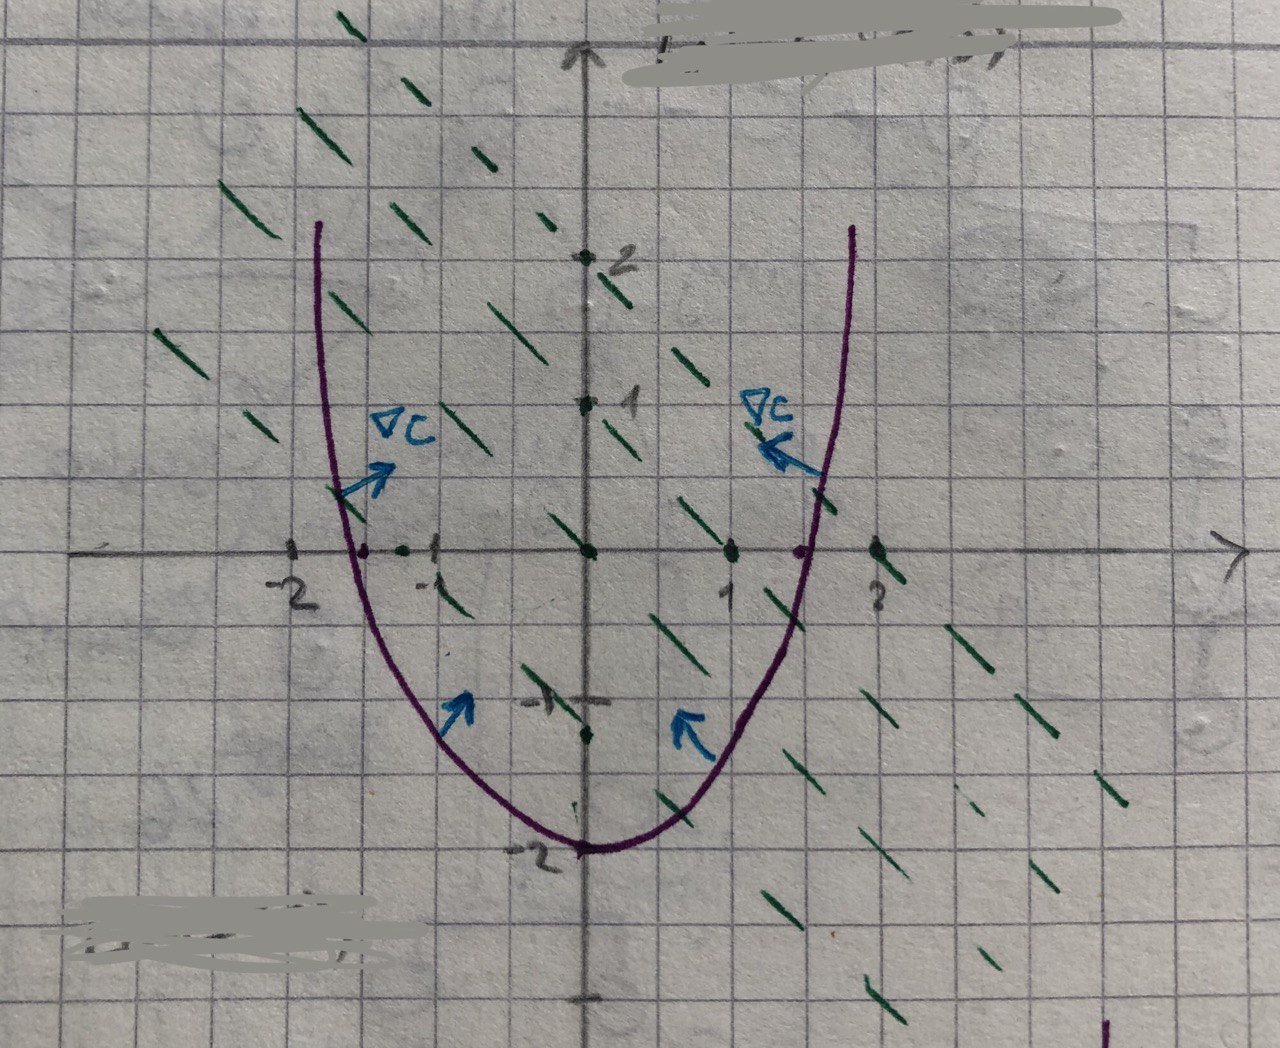 2
1
∇c
∇c
-2
-1
1
2
-1
-2